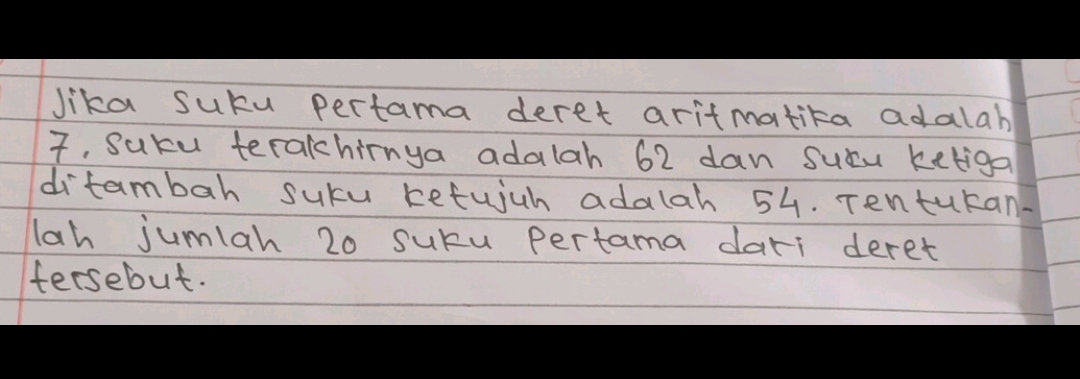 Jika suku pertama deret aritmatika adalah
7, suku terakhirnya adalah 62 dan suku ketiga
ditambah suku ketujuh adalah 54. Tentukan-
lah jumlah 20 suku pertama dari deret
tersebut.